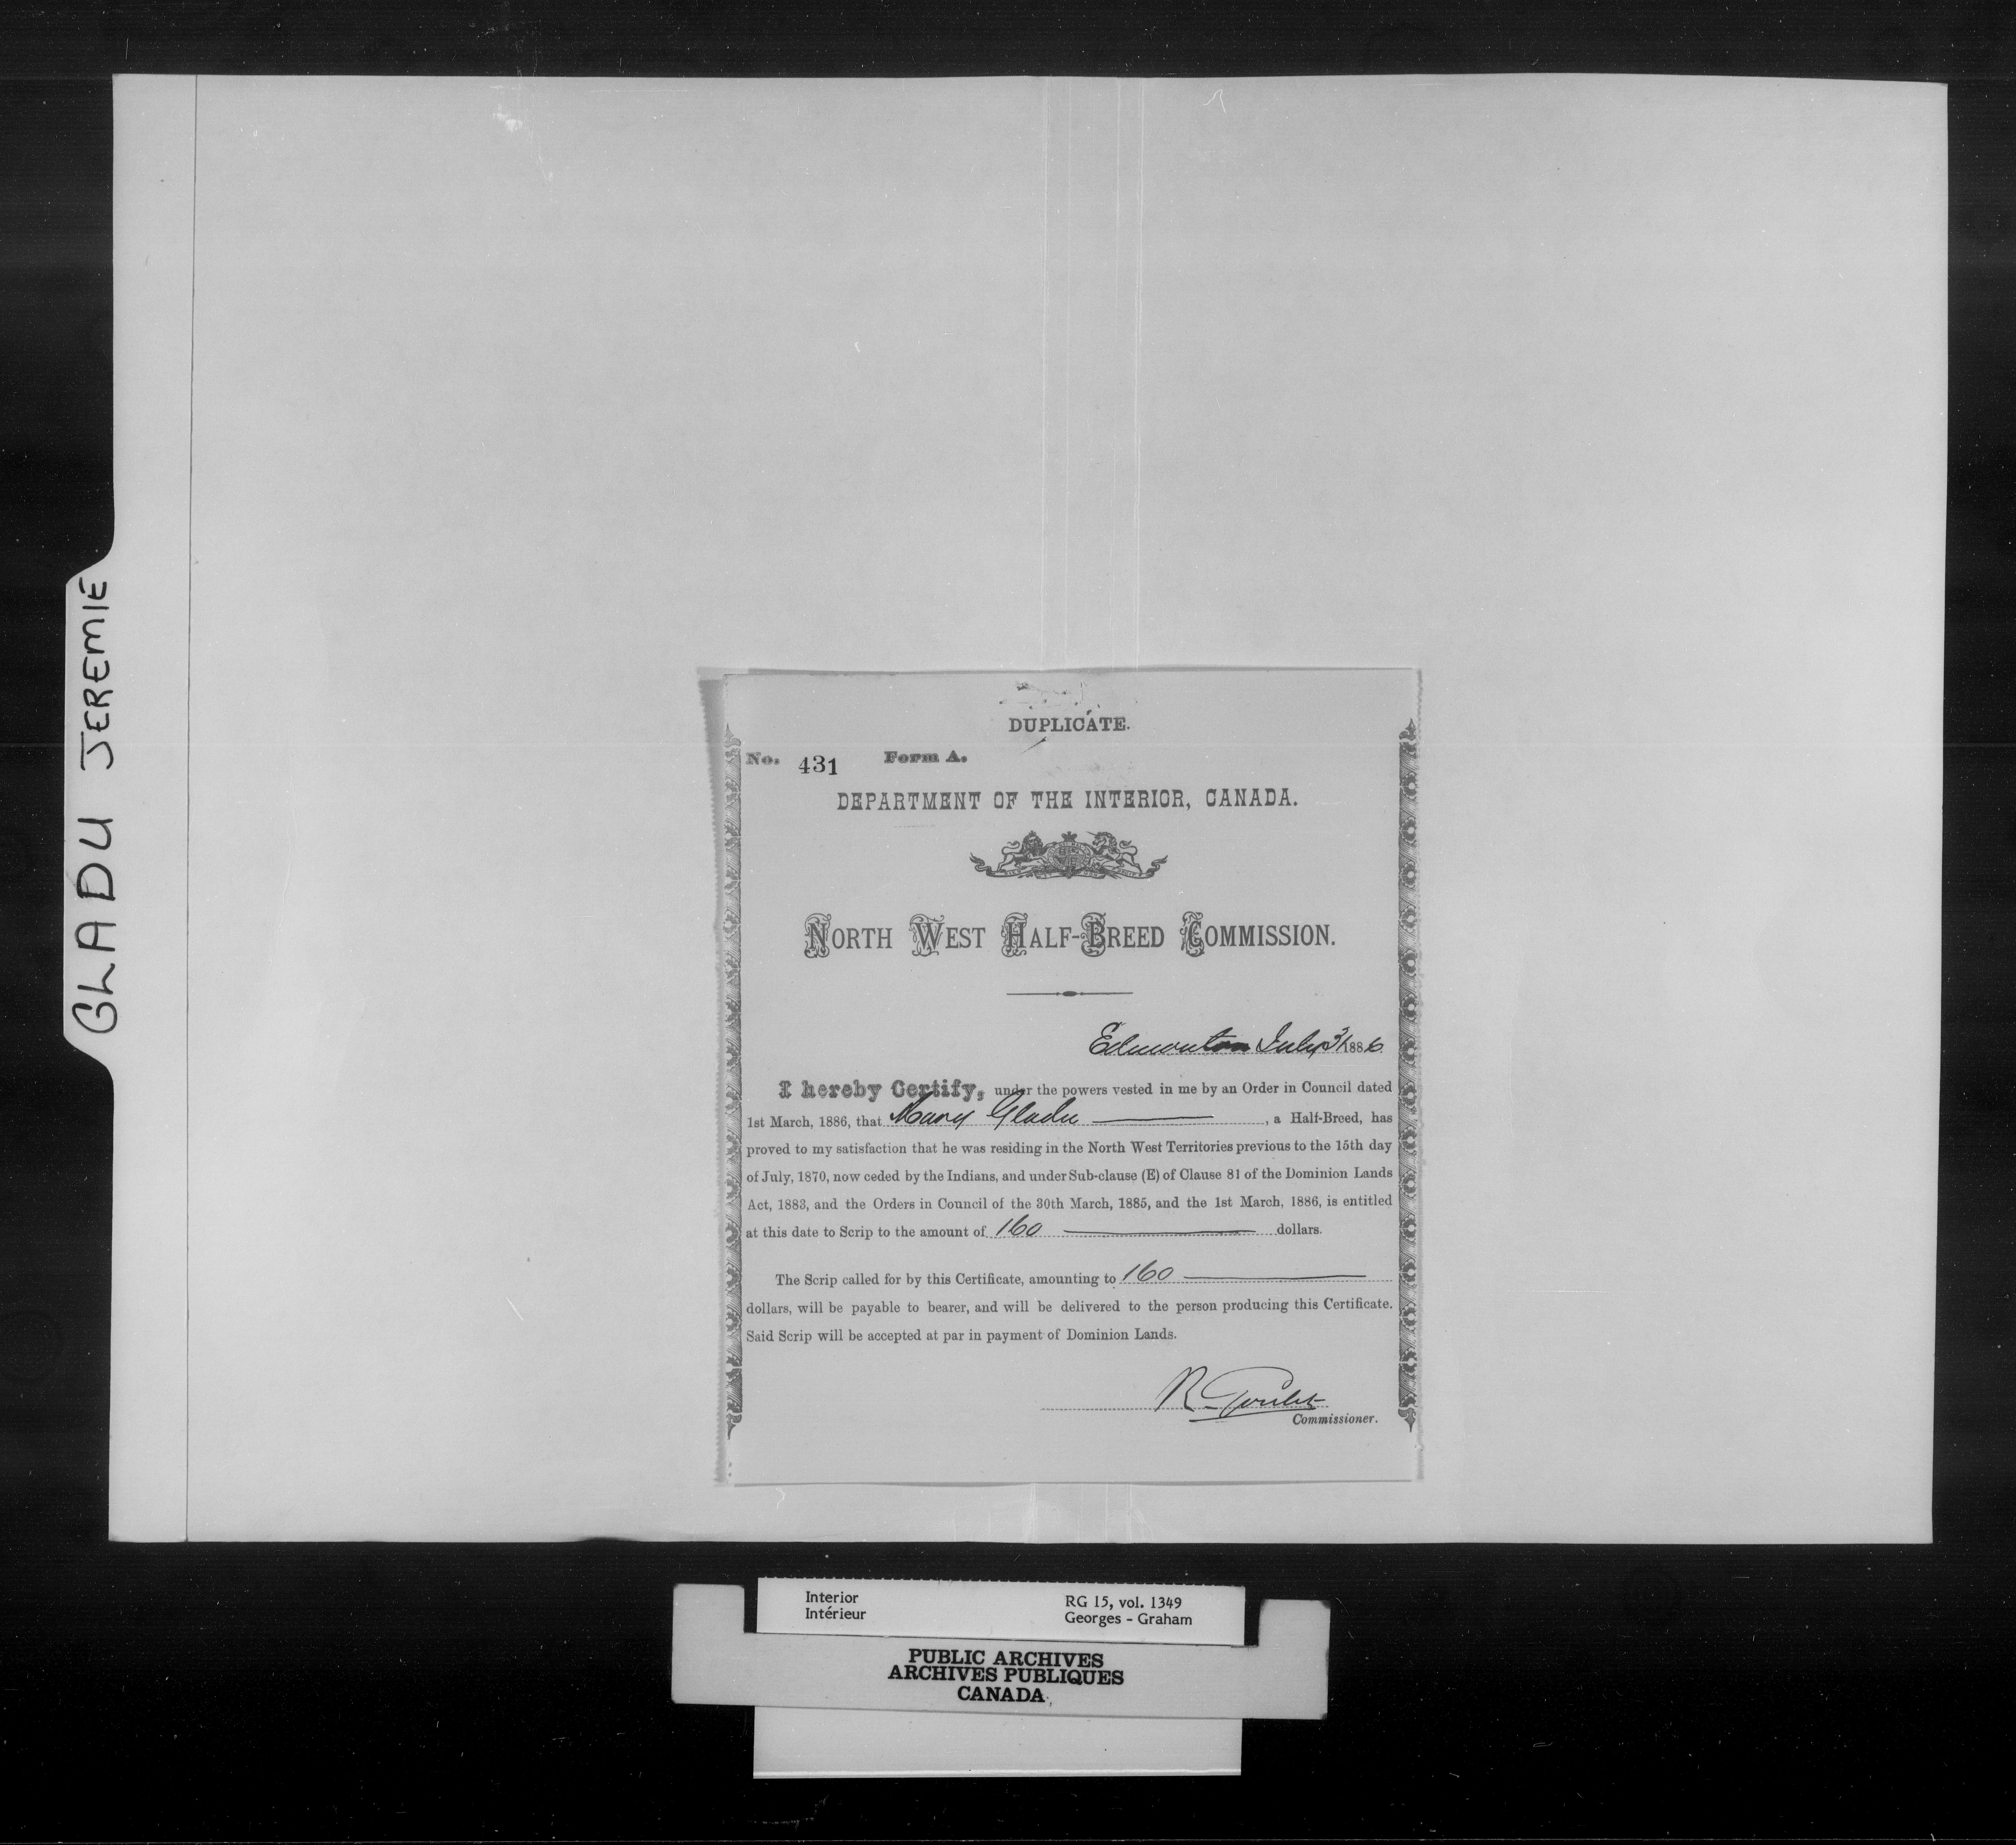 GLADU JEREMIE
DUPLICATE.
No. 431 Form A.
DEPARTMENT OF THE INTERIOR, CANADA.
NORTH WEST HALF-BREED COMMISSION.
Edmonton July 31 1886
I hereby Certify, under the powers vested in me by an Order in Council dated
1st March, 1886, that Mary Gladu, a Half-Breed, has
proved to my satisfaction that he was residing in the North West Territories previous to the 15th day
of July, 1870, now ceded by the Indians, and under Sub-clause (E) of Clause 81 of the Dominion Lands
Act, 1883, and the Orders in Council of the 30th March, 1885, and the 1st March, 1886, is entitled
at this date to Scrip to the amount of 160 dollars.
The Scrip called for by this Certificate, amounting to 160
dollars, will be payable to bearer, and will be delivered to the person producing this Certificate.
Said Scrip will be accepted at par in payment of Dominion Lands.
R. Goulet
Commissioner.
Interior RG 15, vol. 1349
Intérieur Georges - Graham
PUBLIC ARCHIVES
ARCHIVES PUBLIQUES
CANADA